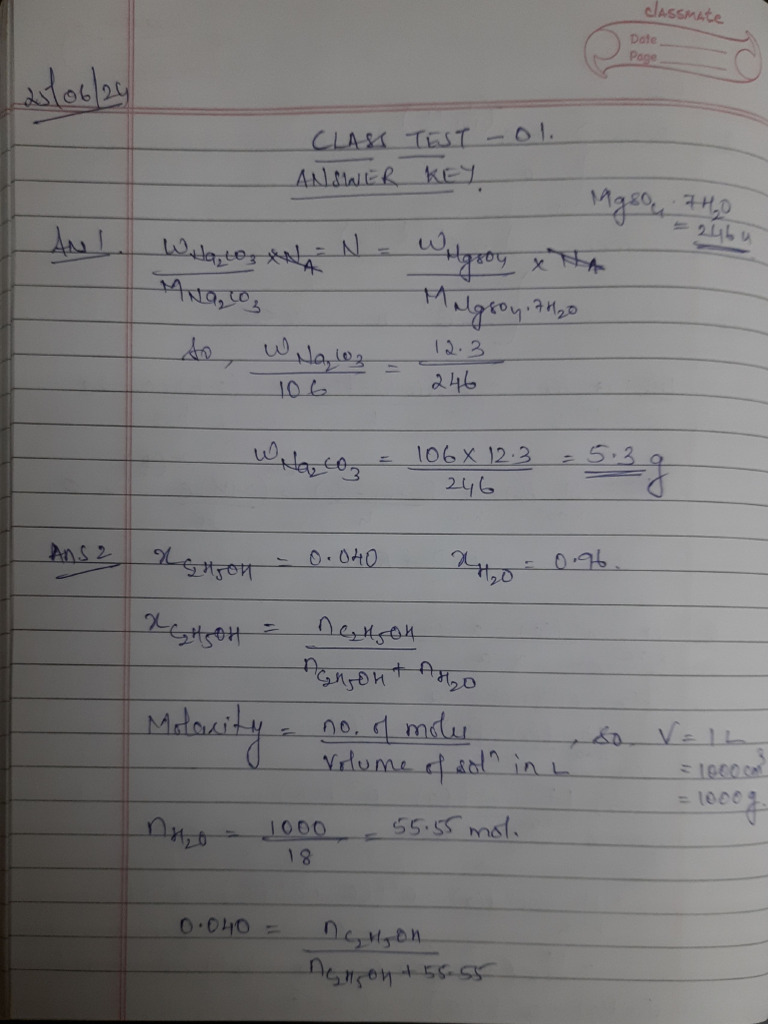 classmate
Date
Page
25/06/24
CLASS TEST - 01.
ANSWER KEY.
MgSO4 · 7H2O
= 246 u
Ans 1. W Na2CO3 / M Na2CO3 × NA = N = W MgSO4 / M MgSO4·7H2O × NA
So, W Na2CO3 / 106 = 12.3 / 246
W Na2CO3 = 106 × 12.3 / 246 = 5.3 g
Ans 2 x C2H5OH = 0.040 x H2O = 0.96.
x C2H5OH = n C2H5OH / n C2H5OH + n H2O
Molarity = no. of moles / Volume of solⁿ in L , so V = 1 L
= 1000 cm³
= 1000 g.
n H2O = 1000 / 18 = 55.55 mol.
0.040 = n C2H5OH / n C2H5OH + 55.55